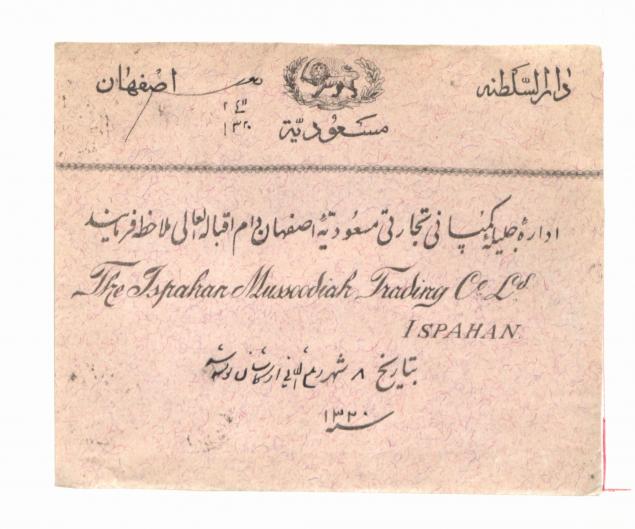 دارالسّلطنه اصفهان
مسعودیّة
۱۳۲۰
ادارهٔ جلیلهٔ کمپانی تجارتی مسعودیّهٔ اصفهان دام اقباله العالی ملاحظه فرمایند
The Ispahan Mussoodiah Trading Co. Ld.
ISPAHAN.
بتاریخ ۸ شهر ربیع الثانی از کاشان
سنه ۱۳۲۰